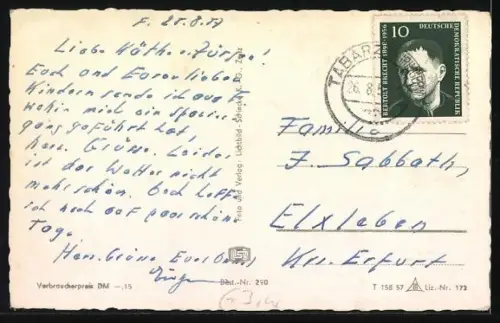 F. 25.8.57
Liebe Käthe u. Jürgen!
Euch und Euren lieben
Kindern sende ich aus F.
wohin mich ein Spazier-
gang geführt hat,
herz. Grüsse. Leider
ist das Wetter nicht
mehr schön. Doch hoff
ich noch auf paar schöne
Tage.
Herz. Grüsse Euer
10
DEUTSCHE
DEMOKRATISCHE REPUBLIK
BERTOLT BRECHT 1898-1956
TABARZ
26.8.
Familie
J. Sabbath,
Elxleben
Krs. Erfurt
Foto und Verlag: Lichtbild-
Verbraucherpreis DM -.15
Best.-Nr. 290
T 158 57
Liz.-Nr. 173